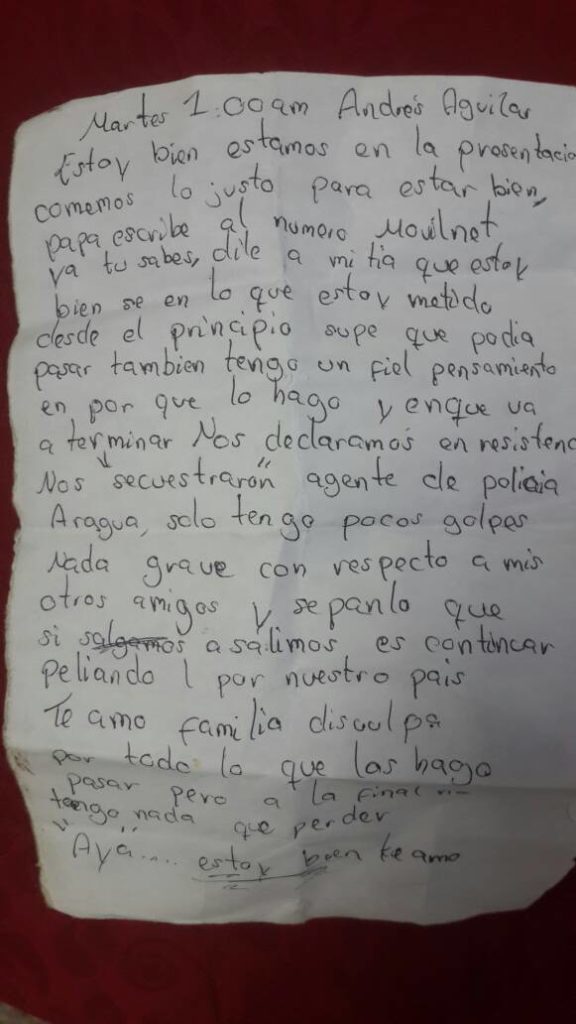 Martes 1:00am Andrés Aguilar
Estoy bien estamos en la presentacio
comemos lo justo para estar bien,
papa escribe al numero Movilnet
ya tu sabes, dile a mi tia que estoy
bien se en lo que estoy metido
desde el principio supe que podia
pasar tambien tengo un fiel pensamiento
en por que lo hago y enque va
a terminar Nos declaramos en resistenc
Nos "secuestrarón" agente de policia
Aragua, solo tengo pocos golpes
Nada grave con respecto a mis
otros amigos y sepanlo que
si salgamos a salimos es contincar
peliando l por nuestro pais
Te amo familia disculpa
por todo lo que las hago
pasar pero a la final
tengo nada que perder
"Aya".... estoy bien te amo